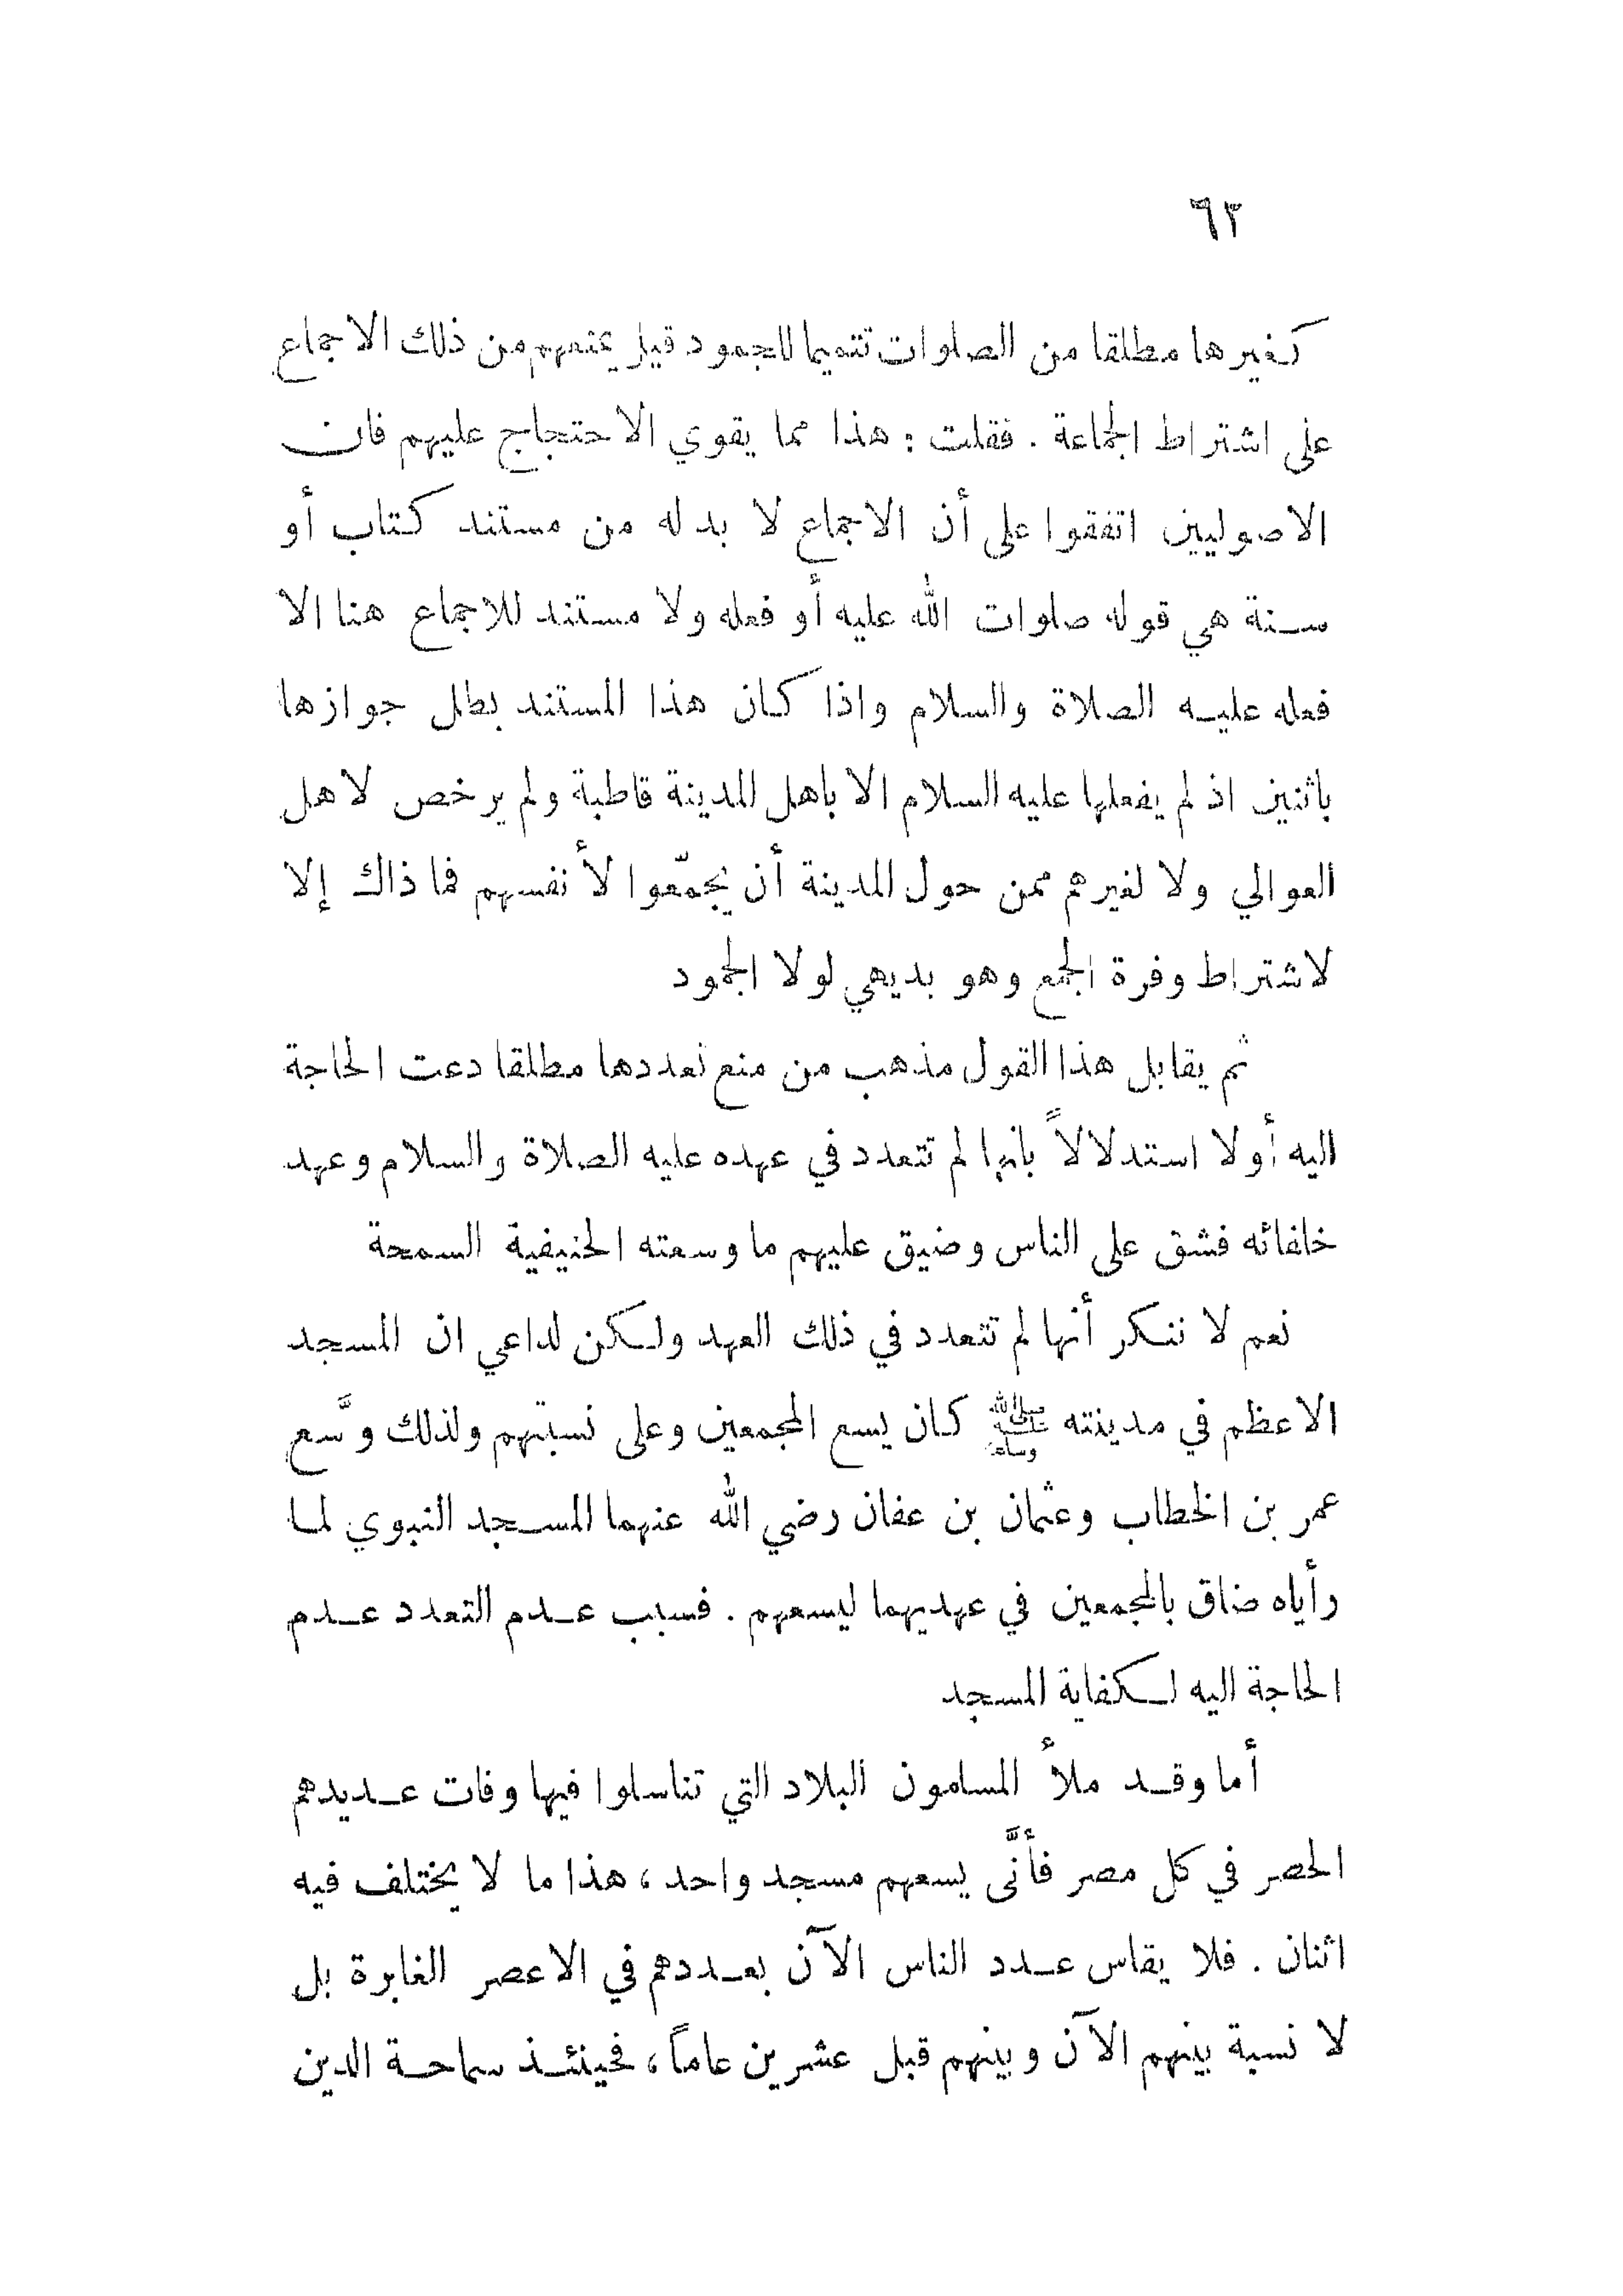 ٦٢
كغيرها مطلقا من الصلوات تتميما للجمود قيل يمنعهم من ذلك الاجماع
على اشتراط الجماعة . فقلت : هذا مما يقوي الاحتجاج عليهم فان
الاصوليين اتفقوا على أن الاجماع لا بد له من مستند كتاب أو
سنة هي قوله صلوات الله عليه أو فعله ولا مستند للاجماع هنا الا
فعله عليه الصلاة والسلام واذا كان هذا المستند بطل جوازها
باثنين اذ لم يفعلها عليه السلام الا باهل المدينة قاطبة ولم يرخص لاهل
العوالي ولا لغيرهم ممن حول المدينة أن يجمّعوا لأنفسهم فما ذاك إلا
لاشتراط وفرة الجمع وهو بديهي لولا الجمود
ثم يقابل هذا القول مذهب من منع تعددها مطلقا دعت الحاجة
اليه أولا استدلالاً بانها لم تتعدد في عهده عليه الصلاة والسلام وعهد
خلفائه فشق على الناس وضيق عليهم ما وسعته الحنيفية السمحة
نعم لا ننكر أنها لم تتعدد في ذلك العهد ولكن لداعي ان المسجد
الاعظم في مدينته ﷺ كان يسع المجمعين وعلى نسبتهم ولذلك وسَّع
عمر بن الخطاب وعثمان بن عفان رضي الله عنهما المسجد النبوي لما
رأياه ضاق بالمجمعين في عهديهما ليسعهم . فسبب عدم التعدد عدم
الحاجة اليه لكفاية المسجد
أما وقد ملأ المسلمون البلاد التي تناسلوا فيها وفات عديدهم
الحصر في كل مصر فأنَّى يسعهم مسجد واحد ، هذا ما لا يختلف فيه
اثنان . فلا يقاس عدد الناس الآن بعددهم في الاعصر الغابرة بل
لا نسبة بينهم الآن وبينهم قبل عشرين عاماً ، فحينئذ سماحة الدين